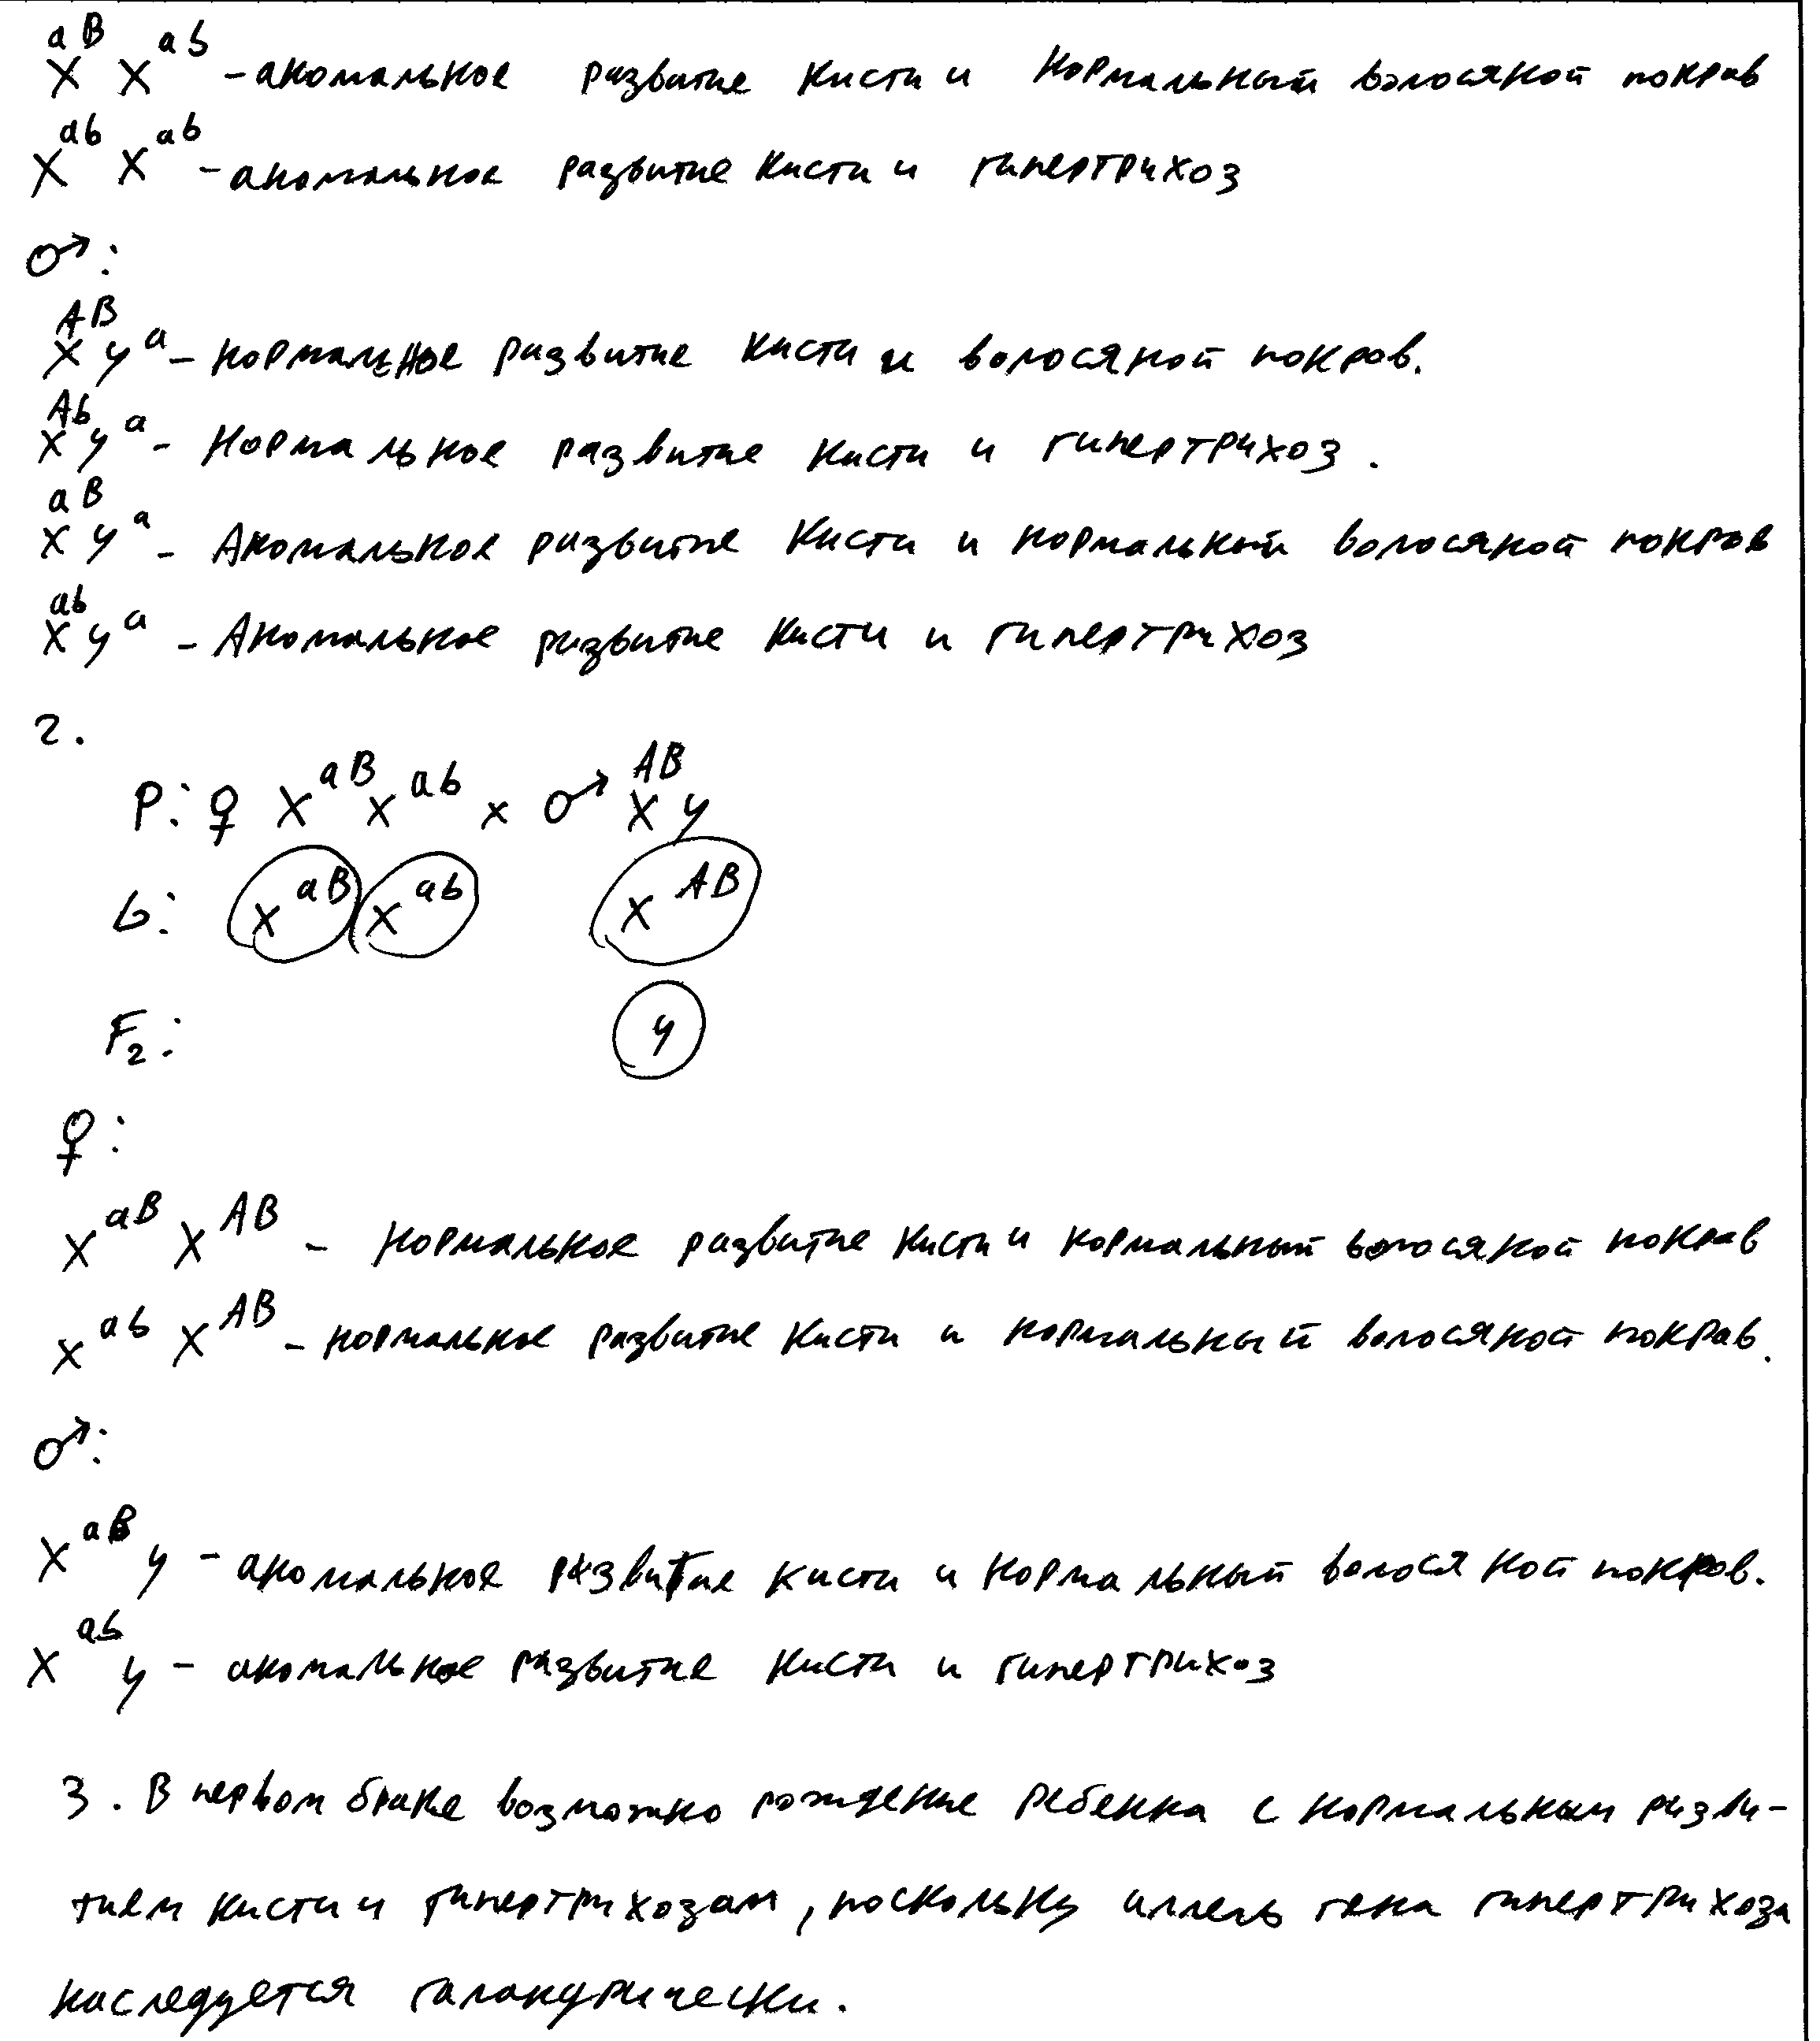 X^aB X^ab - аномальное развитие кисти и нормальный волосяной покров
X^ab X^ab - аномальное развитие кисти и гипертрихоз
♂:
X^AB Y^a - нормальное развитие кисти и волосяной покров.
X^Ab Y^a - Нормальное развитие кисти и гипертрихоз.
X^aB Y^a - Аномальное развитие кисти и нормальный волосяной покров
X^ab Y^a - Аномальное развитие кисти и гипертрихоз
2.
P: ♀ X^aB X^ab x ♂ X^AB Y
G: X^aB X^ab X^AB
F2: Y
♀:
X^aB X^AB - нормальное развитие кисти и нормальный волосяной покров
X^ab X^AB - нормальное развитие кисти и нормальный волосяной покров.
♂:
X^aB Y - аномальное развитие кисти и нормальный волосяной покров.
X^ab Y - аномальное развитие кисти и гипертрихоз
3. В первом браке возможно рождение ребенка с нормальным разви-
тием кисти и гипертрихозам, поскольку аллель гена гипертрихоза
наследуется галандрически.